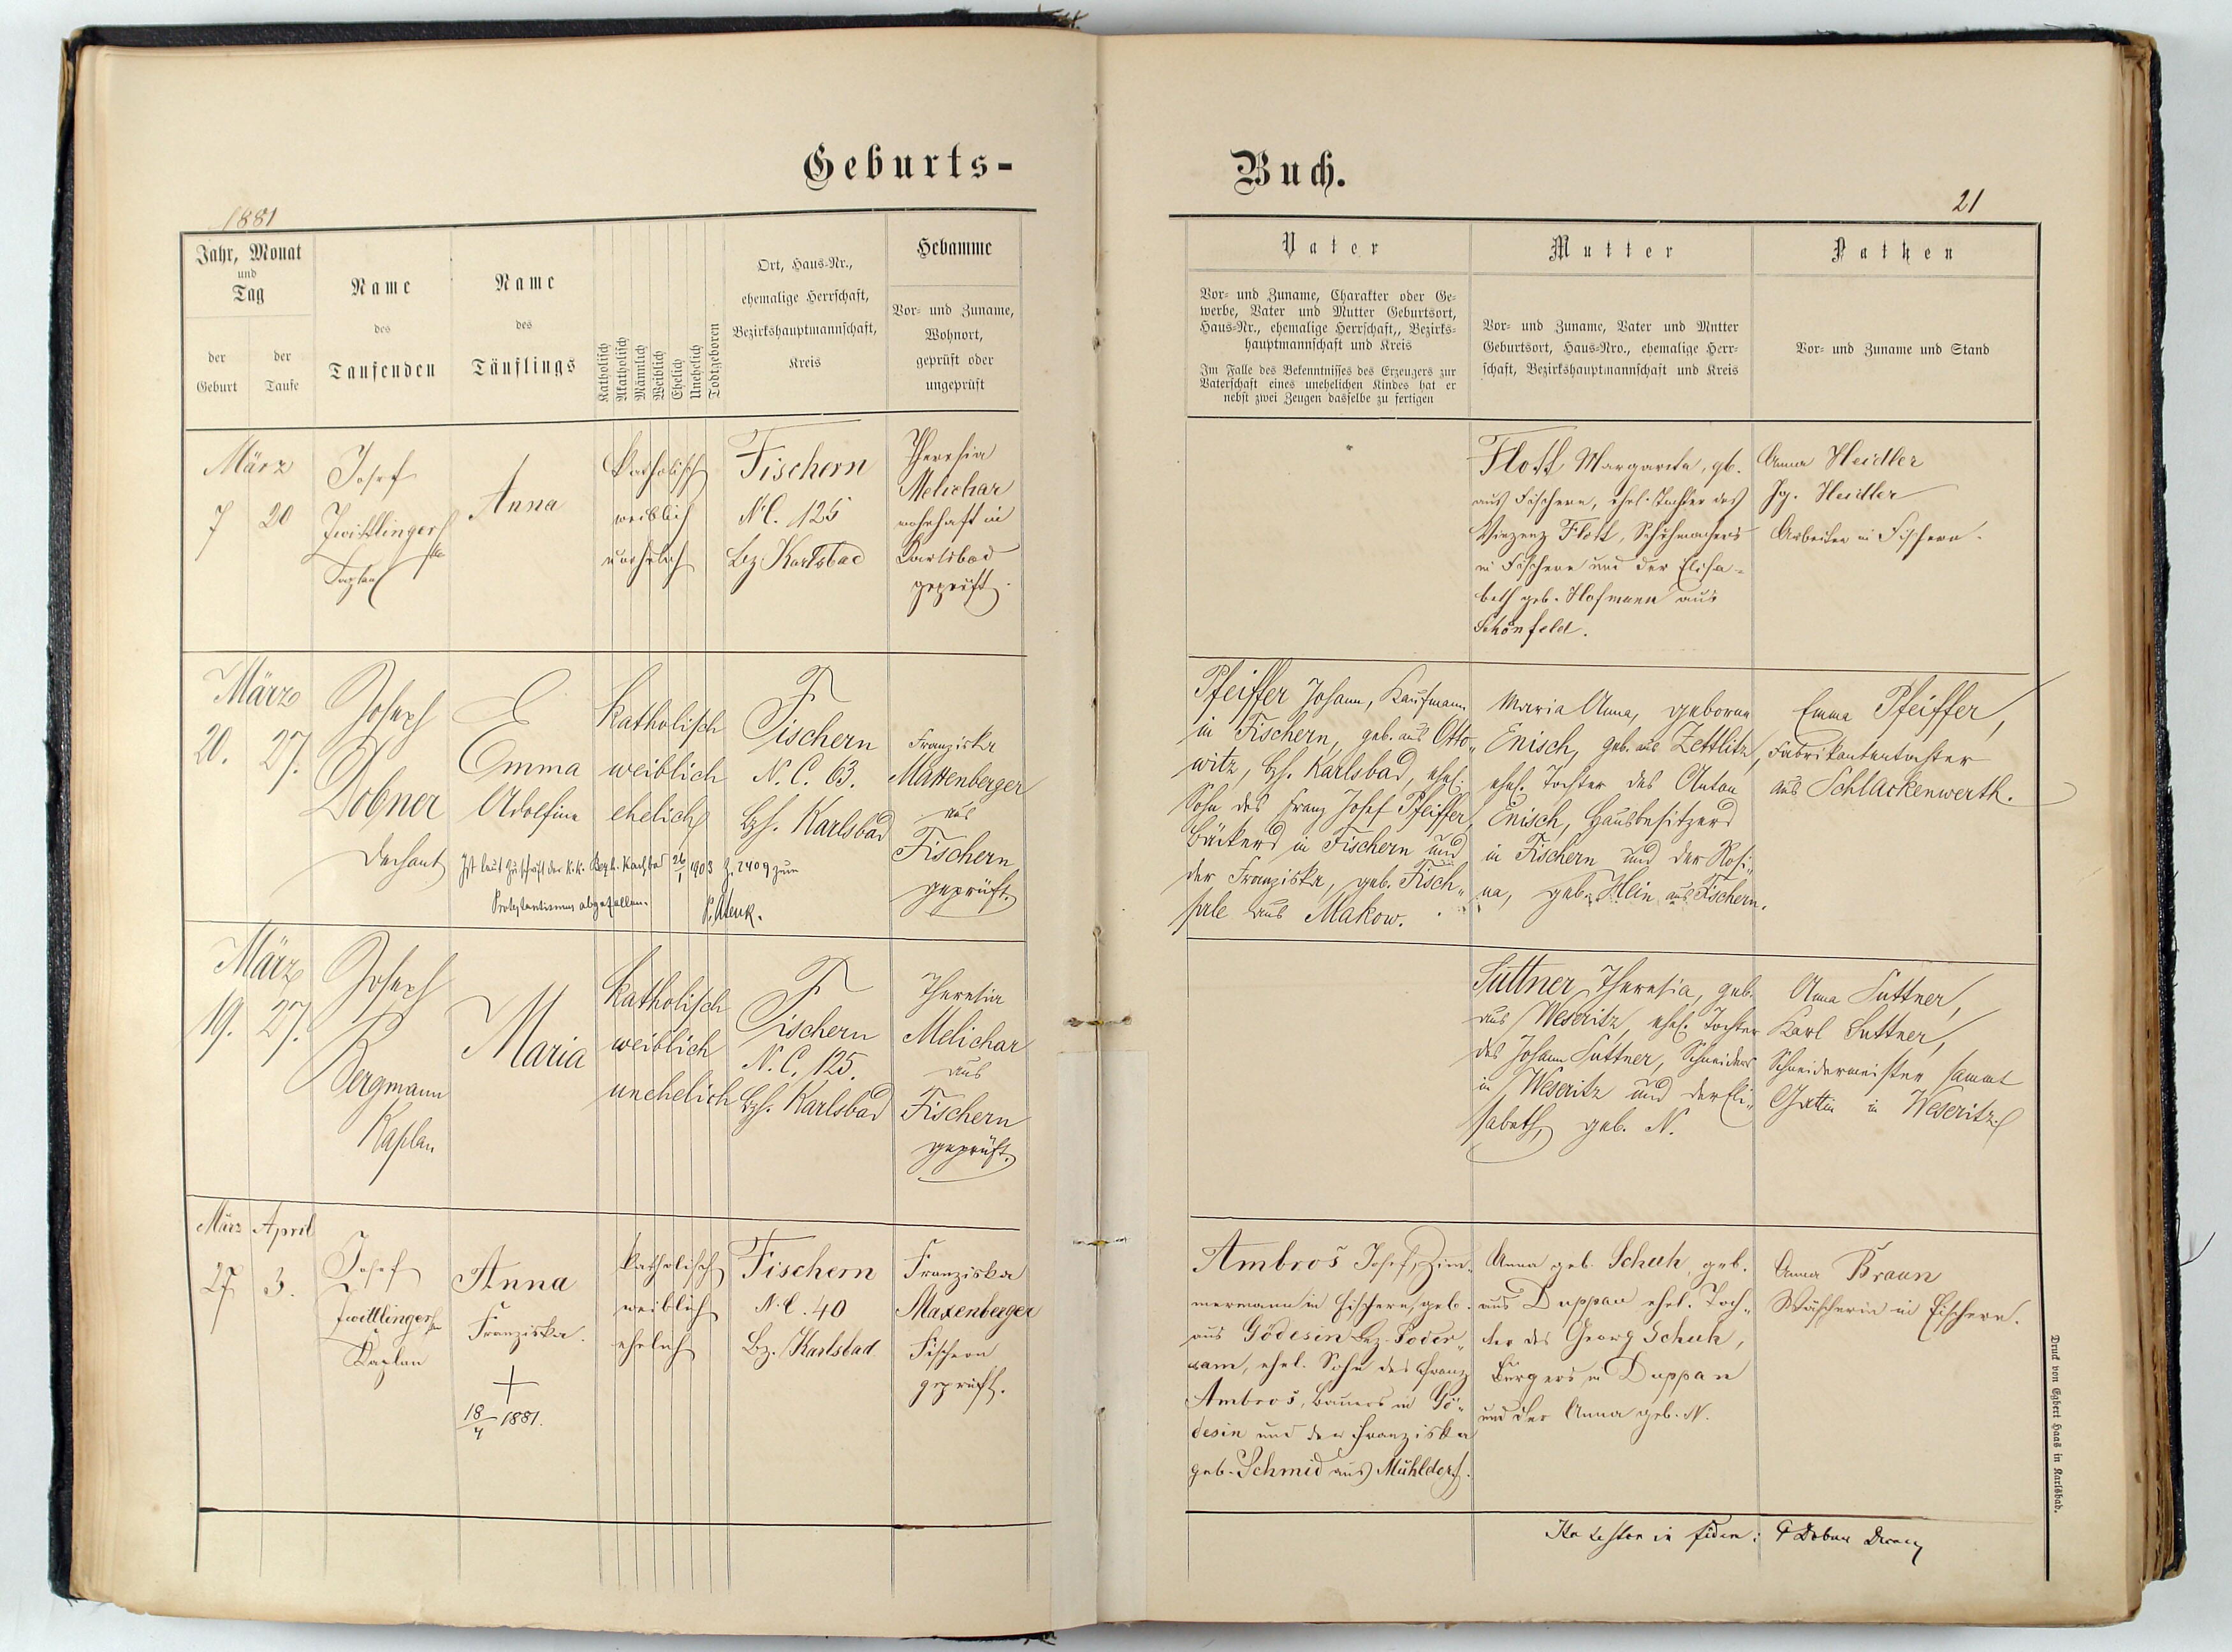 Geburts-
Buch.
1881
21
Jahr, Monat
und
Tag
der
Geburt
der
Taufe
Name
des
Taufenden
Name
des
Täuflings
Katholisch
Akatholisch
Männlich
Weiblich
Ehelich
Unehelich
Todtgeboren
Ort, Haus-Nr.,
ehemalige Herrschaft,
Bezirkshauptmannschaft,
Kreis
Hebamme
Vor- und Zuname,
Wohnort,
geprüft oder
ungeprüft
Vater
Vor- und Zuname, Charakter oder Ge-
werbe, Vater und Mutter Geburtsort,
Haus-Nr., ehemalige Herrschaft,, Bezirks-
hauptmannschaft und Kreis
Im Falle des Bekenntnisses des Erzeugers zur
Vaterschaft eines unehelichen Kindes hat er
nebst zwei Zeugen dasselbe zu fertigen
Mutter
Vor- und Zuname, Vater und Mutter
Geburtsort, Haus-Nro., ehemalige Herr-
schaft, Bezirkshauptmannschaft und Kreis
Pathen
Vor- und Zuname und Stand
März
7 20
Josef
Zwittlinger
Kaplan
Anna
katholisch
weiblich
unehelich
Fischern
N.C. 125
Bez. Karlsbad
Theresia
Melichar
wohnhaft in
Karlsbad
geprüft.
Flott Margareta, gb.
aus Fischern, ehel. Tochter des
Vinzenz Flott, Schuhmachers
in Fischern und der Elisa-
beth geb. Hofmann aus
Schönfeld.
Anna Heidler
Jg. Heidler
Arbeiter in Fischern.
März
20. 27.
Joseph
Dobner
Dechant
Emma
Adolfine
katholisch
weiblich
ehelich
Fischern
N. C. 63.
Bzh. Karlsbad
Franziska
Mattenberger
aus
Fischern
geprüft.
Ist laut Zuschrift der k.k. Bezh. Karlsbad 26/1 1903 Z. 2409 zum
Protestantismus abgefallen.
Pfeiffer Johann, Kaufmann
in Fischern, geb. aus Otto-
witz, Bzh. Karlsbad, ehel.
Sohn des Franz Josef Pfeiffer,
Bäckers in Fischern und
der Franziska, geb. Fisch-
aus Makow.
Maria Anna, geborne
Enisch, geb. aus Zettlitz,
ehel. Tochter des Anton
Enisch, Hausbesitzers
in Fischern und der Rosi-
na, geb. Hein aus Fischern.
Emma Pfeiffer,
Fabrikantentochter
aus Schlackenwerth.
März
19. 27.
Joseph
Bergmann
Kaplan
Maria
katholisch
weiblich
unehelich
Fischern
N. C. 125.
Bzh. Karlsbad
Theresia
Melichar
aus
Fischern
geprüft.
Suttner Theresia, geb.
aus Weseritz, ehel. Tochter
des Johann Suttner, Schneiders
in Weseritz und der Eli-
sabeth, geb. N.
Anna Suttner,
Karl Suttner,
Schneidermeister sammt
Gattin in Weseritz.
März April
27 3.
Josef
Zwittlinger
Kaplan
Anna
Franziska.
+
18/4 1881.
katholisch
weiblich
ehelich
Fischern
N.C. 40
Bz. Karlsbad
Franziska
Maxenberger
Fischern
geprüft.
Ambros Josef, Zim-
mermann in Fischern, geb.
aus Gödesin Bez. Poder-
sam, ehel. Sohn des Franz
Ambros, Bauers in Gö-
desin und der Franziska
geb. Schmid aus Mühldorf.
Anna geb. Schuh, geb.
aus Duppau ehel. Toch-
ter des Georg Schuh,
Bürgers in Duppau
und der Anna geb. N.
Anna Braun
Wäscherin in Fischern.
Ita testor in fidem:
Druck von Egbert Haas in Karlsbad.